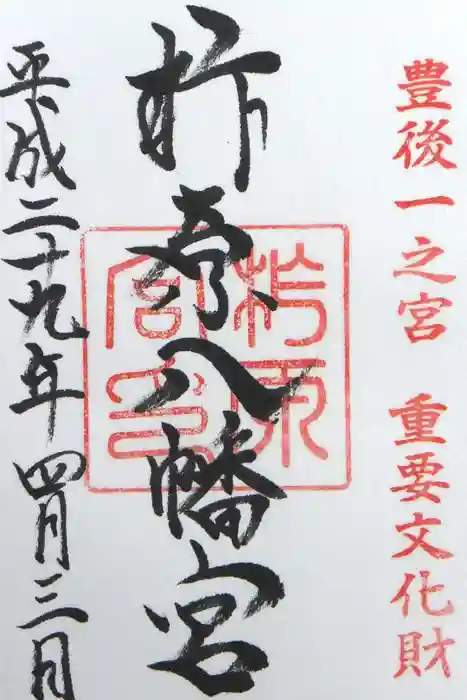 豊後一之宮 重要文化財
柞原八幡宮
柞原
宮印
平成二十九年四月三日